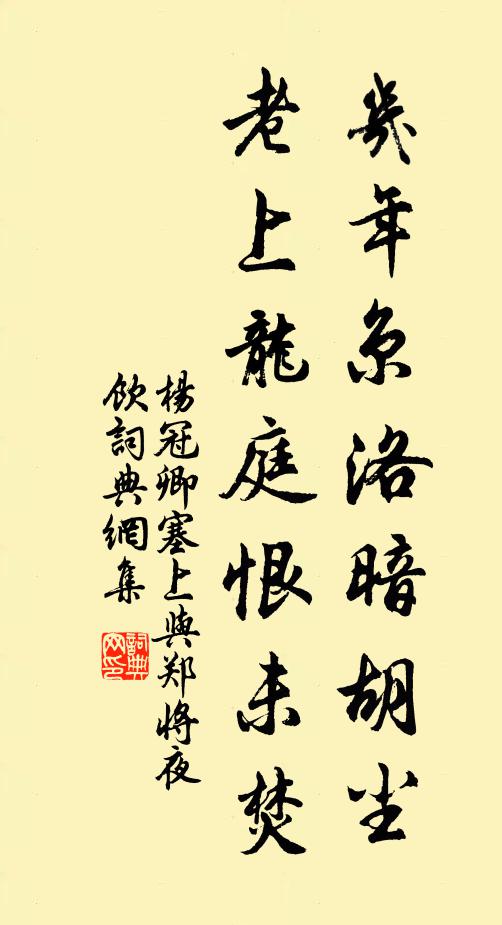 幾年京洛暗胡尘
老上龍庭恨未焚
楊冠卿塞上與郑將夜
飲詞典網集
詞典
网印